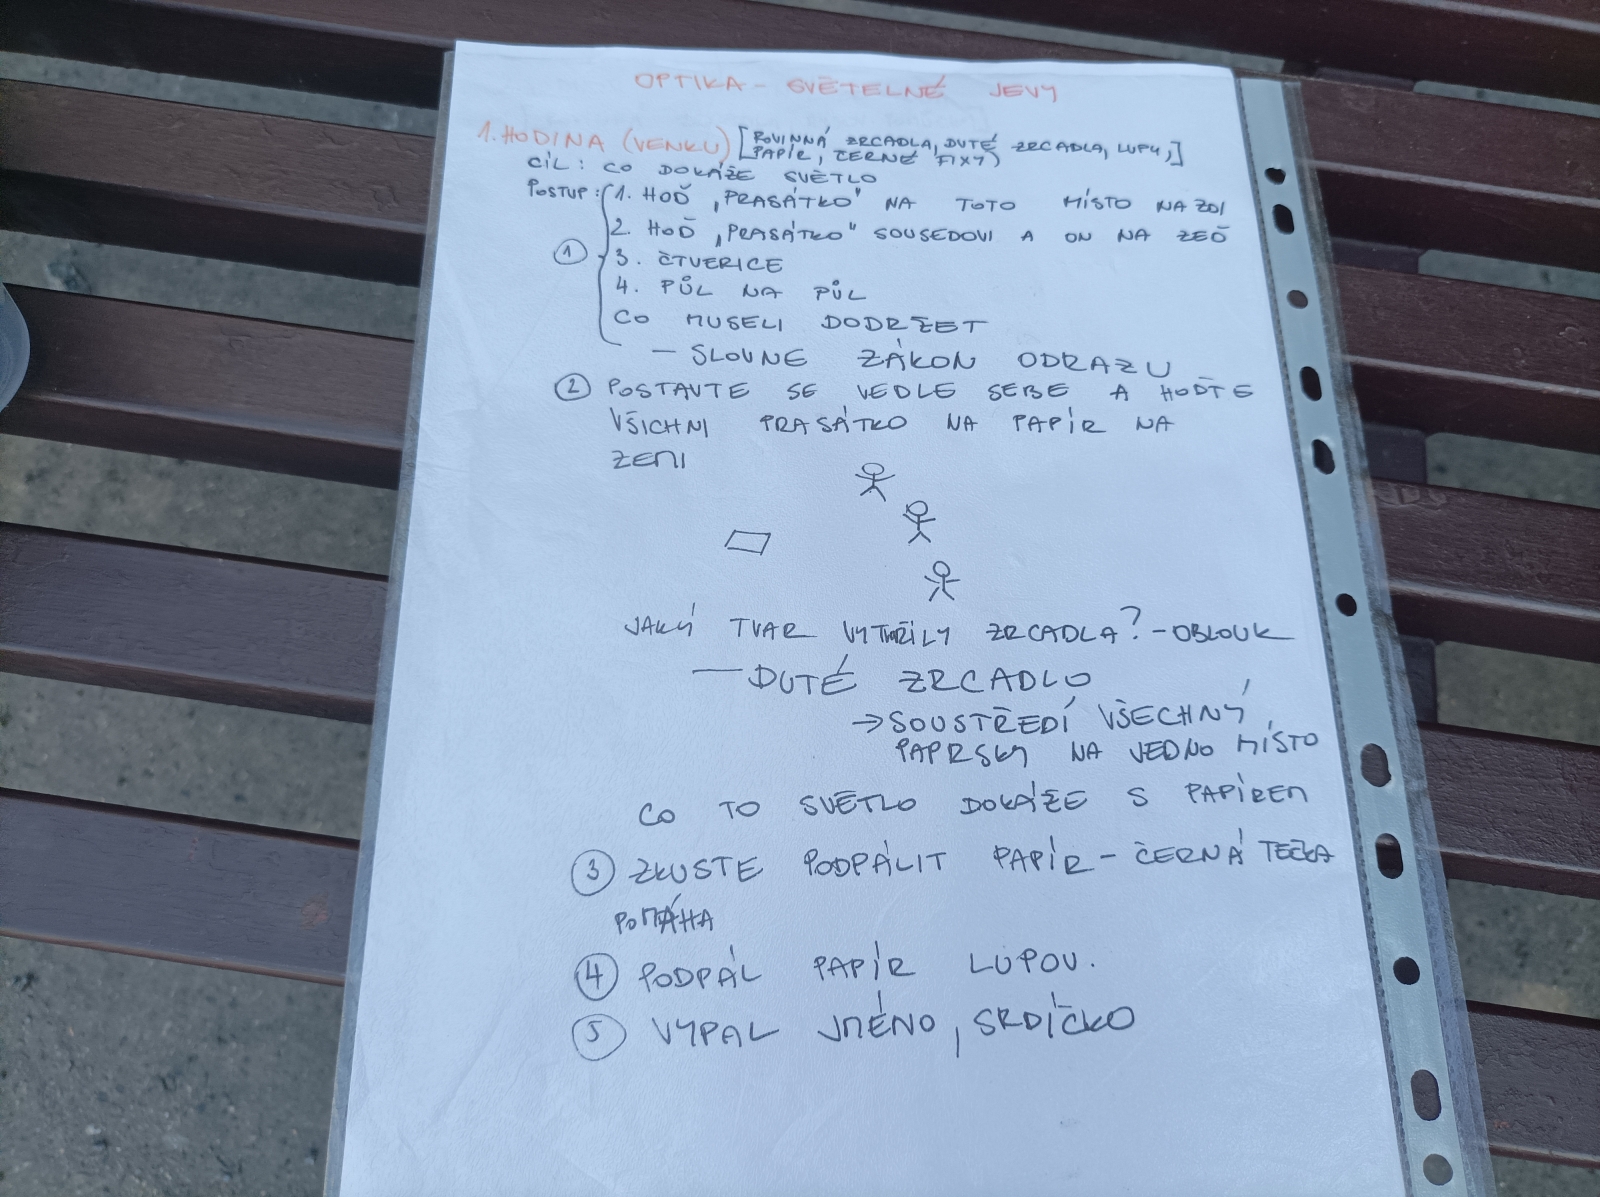 OPTIKA - SVĚTELNÉ JEVY
1. HODINA (VENKU) [ROVINNÁ ZRCADLA, DUTÉ ZRCADLA, LUPY,]
PAPÍR, ČERNÉ FIXY)
CÍL: CO DOKÁŽE SVĚTLO
POSTUP: 1. HOĎ „PRASÁTKO" NA TOTO MÍSTO NA ZDI
2. HOĎ „PRASÁTKO" SOUSEDOVI A ON NA ZEĎ
1 3. ČTVERICE
4. PŮL NA PŮL
CO MUSELI DODRŽET
- SLOVNE ZÁKON ODRAZU
2 POSTAVTE SE VEDLE SEBE A HOĎTE
VŠICHNI PRASÁTKO NA PAPÍR NA
ZEMI
JAKÝ TVAR VYTVOŘILY ZRCADLA? - OBLOUK
- DUTÉ ZRCADLO
→ SOUSTŘEDÍ VŠECHNY
PAPRSKY NA JEDNO MÍSTO
CO TO SVĚTLO DOKÁŽE S PAPÍREM
3 ZKUSTE PODPÁLIT PAPÍR - ČERNÁ TEČKA
POMÁHA
4 PODPÁL PAPÍR LUPOU.
5 VYPAL JMÉNO, SRDÍČKO